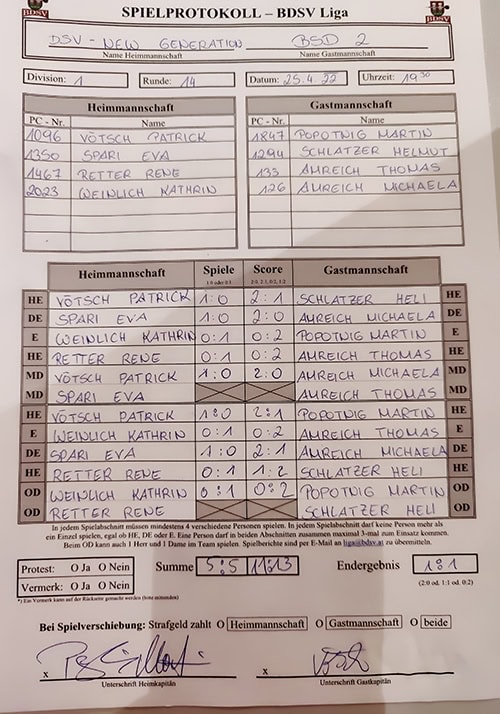 BDSV SPIELPROTOKOLL – BDSV Liga BDSV
DSV - NEW GENERATION BSD 2
Name Heimmannschaft Name Gastmannschaft
Division: 1 Runde: 14 Datum: 25.4.22 Uhrzeit: 19 30
Heimmannschaft Gastmannschaft
PC - Nr. Name PC - Nr. Name
1096 VÖTSCH PATRICK 1847 POPOTNIG MARTIN
1350 SPARI EVA 1294 SCHLATZER HELMUT
1467 RETTER RENE 133 AMREICH THOMAS
2023 WEINLICH KATHRIN 126 AMREICH MICHAELA
Heimmannschaft Spiele Score Gastmannschaft
1:0 oder 0:1 2:0, 2:1, 0:2, 1:2
HE VÖTSCH PATRICK 1:0 2:1 SCHLATZER HELI HE
DE SPARI EVA 1:0 2:0 AMREICH MICHAELA DE
E WEINLICH KATHRIN 0:1 0:2 POPOTNIG MARTIN E
HE RETTER RENE 0:1 0:2 AMREICH THOMAS HE
MD VÖTSCH PATRICK 1:0 2:0 AMREICH MICHAELA MD
MD SPARI EVA AMREICH THOMAS MD
HE VÖTSCH PATRICK 1:0 2:1 POPOTNIG MARTIN HE
E WEINLICH KATHRIN 0:1 0:2 AMREICH THOMAS E
DE SPARI EVA 1:0 2:1 AMREICH MICHAELA DE
HE RETTER RENE 0:1 1:2 SCHLATZER HELI HE
OD WEINLICH KATHRIN 0:1 0:2 POPOTNIG MARTIN OD
OD RETTER RENE SCHLATZER HELI OD
In jedem Spielabschnitt müssen mindestens 4 verschiedene Personen spielen. In jedem Spielabschnitt darf keine Person mehr als
ein Einzel spielen, egal ob HE, DE oder E. Eine Person darf in beiden Abschnitten zusammen maximal 3-mal zum Einsatz kommen.
Beim OD kann auch 1 Herr und 1 Dame im Team spielen. Spielberichte sind per E-Mail an liga@bdsv.at zu übermitteln.
Protest: O Ja O Nein Summe 5:5 11:13 Endergebnis 1:1
Vermerk: O Ja O Nein (2:0 od. 1:1 od. 0:2)
*) Ein Vermerk kann auf der Rückseite gemacht werden (bitte ankreuzen)
Bei Spielverschiebung: Strafgeld zahlt O Heimmannschaft O Gastmannschaft O beide
x x
Unterschrift Heimkapitän Unterschrift Gastkapitän